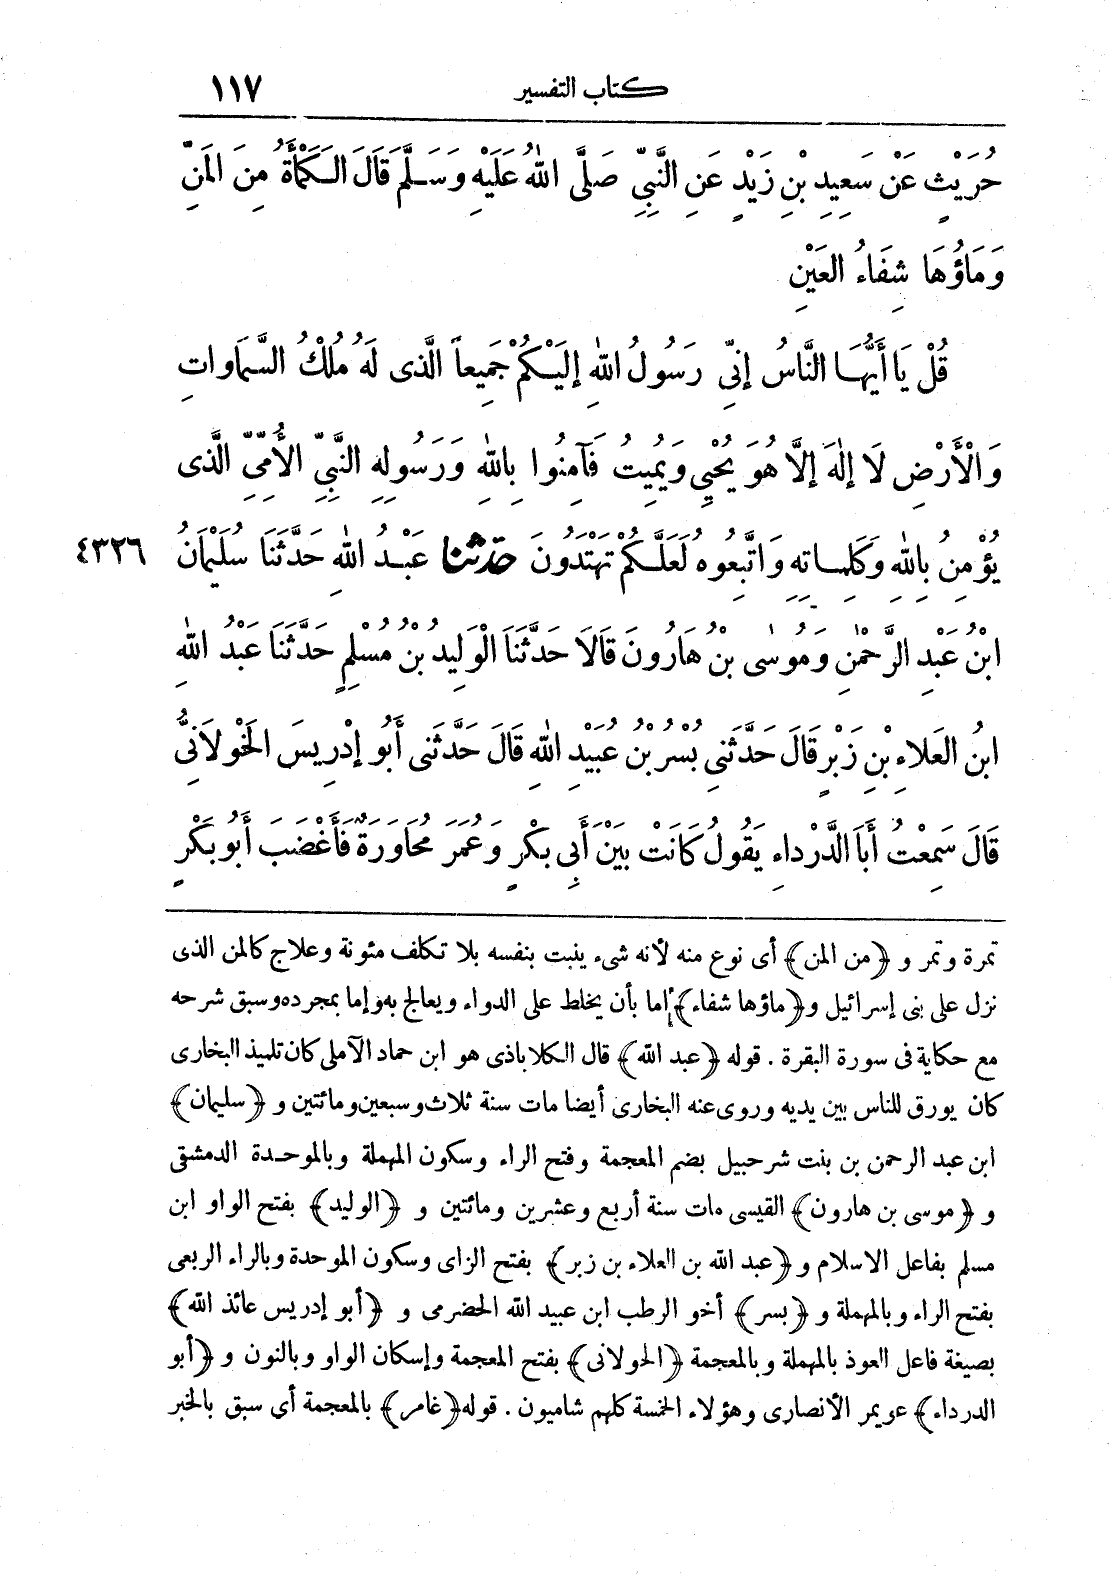 كتاب التفسير ١١٧
حُرَيْثٍ عَنْ سَعِيدِ بْنِ زَيْدٍ عَنِ النَّبِيِّ صَلَّى اللهُ عَلَيْهِ وَسَلَّمَ قَالَ الْكَمْأَةُ مِنَ المَنِّ
وَمَاؤُهَا شِفَاءُ العَيْنِ
قُلْ يَا أَيُّهَا النَّاسُ إِنِّي رَسُولُ اللهِ إِلَيْكُمْ جَمِيعاً الَّذِى لَهُ مُلْكُ السَّمَاوَاتِ
وَالْأَرْضِ لَا إِلٰهَ إِلَّا هُوَ يُحْيِي وَيُمِيتُ فَآمِنُوا بِاللهِ وَرَسُولِهِ النَّبِيِّ الأُمِّيِّ الَّذِى
يُؤْمِنُ بِاللهِ وَكَلِمَاتِهِ وَاتَّبِعُوهُ لَعَلَّكُمْ تَهْتَدُونَ حدثنا عَبْدُ اللهِ حَدَّثَنَا سُلَيْمَانُ ٤٣٢٦
ابْنُ عَبْدِ الرَّحْمٰنِ وَمُوسَى بْنُ هَارُونَ قَالَا حَدَّثَنَا الْوَلِيدُ بْنُ مُسْلِمٍ حَدَّثَنَا عَبْدُ اللهِ
ابنُ العَلَاءِ بْنِ زَبْرٍ قَالَ حَدَّثَنِي بُسْرُ بْنُ عُبَيْدِ اللهِ قَالَ حَدَّثَنِى أَبُو إِدْرِيسَ الخَوْلَانِيُّ
قَالَ سَمِعْتُ أَبَا الدَّرْدَاءِ يَقُولُ كَانَتْ بَيْنَ أَبِى بَكْرٍ وَعُمَرَ مُحَاوَرَةٌ فَأَغْضَبَ أَبُو بَكْرٍ
تمرة وتمر و ﴿من المن﴾ أى نوع منه لأنه شىء ينبت بنفسه بلا تكلف مئونة وعلاج كالمن الذى
نزل على بنى إسرائيل و﴿ماؤها شفاء﴾ إما بأن يخلط على الدواء ويعالج به وإما بمجرده وسبق شرحه
مع حكاية فى سورة البقرة . قوله ﴿عبد الله﴾ قال الكلاباذى هو ابن حماد الآملى كان تلميذ البخارى
كان يورق للناس بين يديه وروى عنه البخارى أيضا مات سنة ثلاث وسبعين ومائتين و ﴿سليمان﴾
ابن عبد الرحمن بن بنت شرحبيل بضم المعجمة وفتح الراء وسكون المهملة وبالموحدة الدمشقى
و ﴿موسى بن هارون﴾ القيسى مات سنة أربع وعشرين ومائتين و ﴿الوليد﴾ بفتح الواو ابن
مسلم بفاعل الاسلام و﴿عبد الله بن العلاء بن زبر﴾ بفتح الزاى وسكون الموحدة وبالراء الربعى
بفتح الراء وبالمهملة و ﴿بسر﴾ أخو الرطب ابن عبيد الله الحضرمى و ﴿أبو إدريس عائذ الله﴾
بصيغة فاعل العوذ بالمهملة وبالمعجمة ﴿الخولانى﴾ بفتح المعجمة وإسكان الواو وبالنون و ﴿أبو
الدرداء﴾ عويمر الأنصارى وهؤلاء الخمسة كلهم شاميون . قوله ﴿غامر﴾ بالمعجمة أى سبق بالخبر